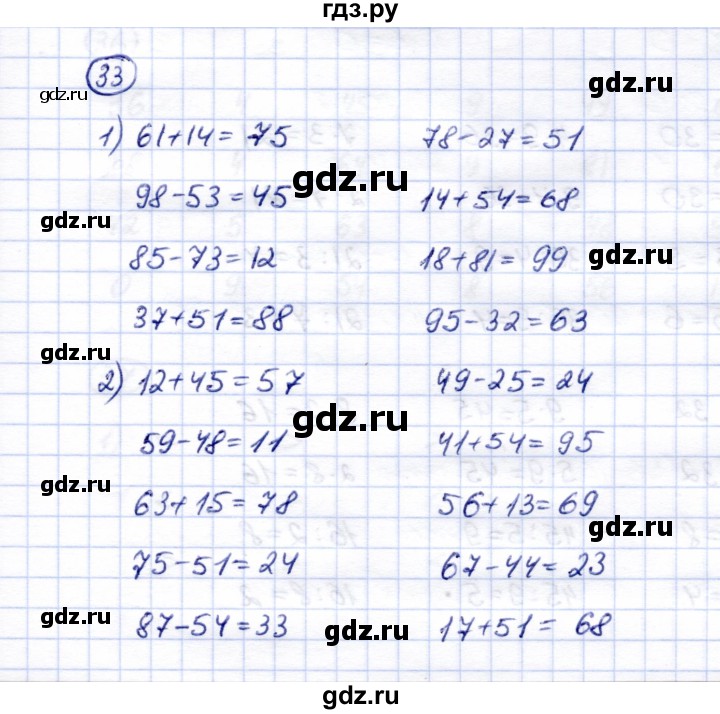 гдз.ру
33
gdz.ru
gdz.ru
1) 61+14= 75 78-27=51
98-53=45 14+54=68
gdz.ru
gdz.ru
85-73=12 18+81= 99
gdz.ru
37+51=88 95-32=63
gdz.ru
2) 12+45=57 49-25=24
gdz.ru
59-48=11 41+54=95
gdz.ru
63+15=78 56+13=69
gdz.ru
75-51=24 67-44=23
gdz.ru
gdz.ru
87-54=33 17+51= 68
gdz.ru